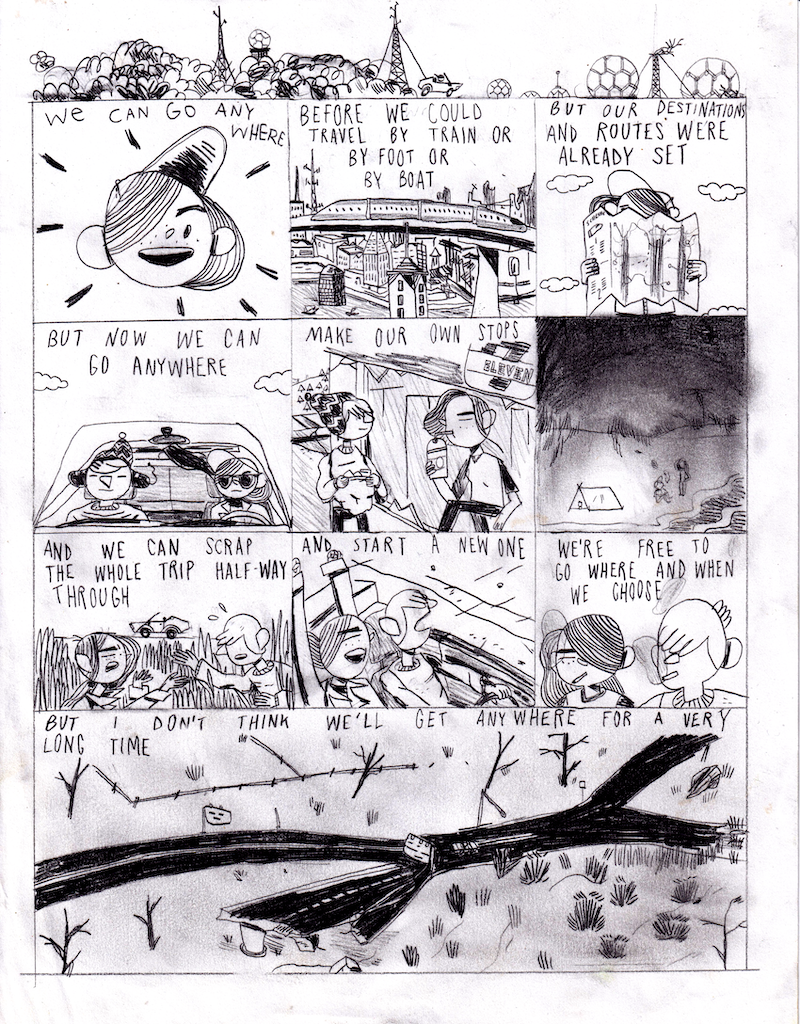 WE CAN GO ANY
WHERE
BEFORE WE COULD
TRAVEL BY TRAIN OR
BY FOOT OR
BY BOAT
BUT OUR DESTINATIONS
AND ROUTES WERE
ALREADY SET
BUT NOW WE CAN
GO ANYWHERE
MAKE OUR OWN STOPS
ELEVEN
AND WE CAN SCRAP
THE WHOLE TRIP HALF-WAY
THROUGH
AND START A NEW ONE
WE'RE FREE TO
GO WHERE AND WHEN
WE CHOOSE
BUT I DON'T THINK WE'LL GET ANYWHERE FOR A VERY
LONG TIME